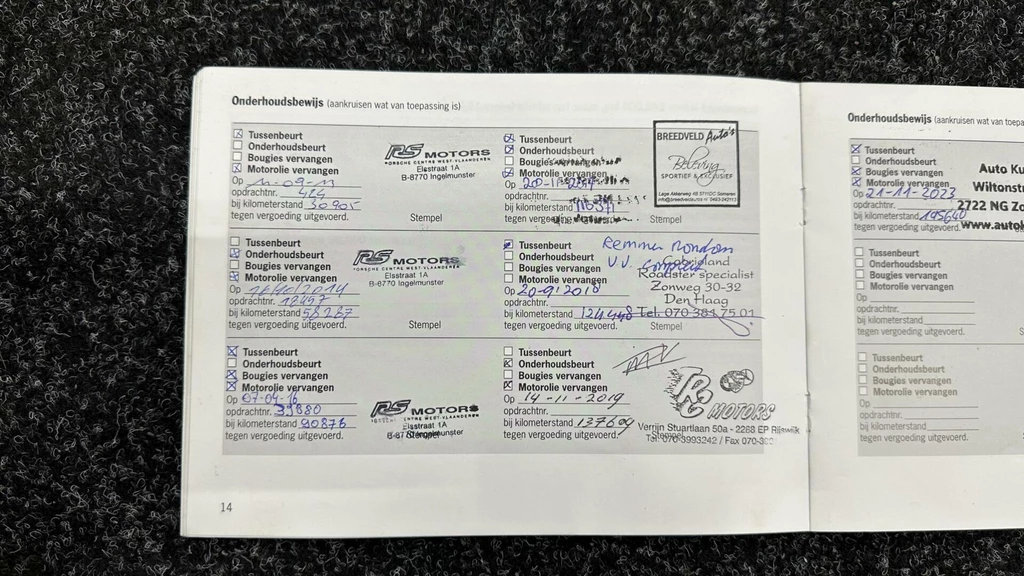 Onderhoudsbewijs (aankruisen wat van toepassing is)
Tussenbeurt
Onderhoudsbeurt
Bougies vervangen
Motorolie vervangen
Op 11-09-11
opdrachtnr. 424
bij kilometerstand 30905
tegen vergoeding uitgevoerd.
RS MOTORS
PORSCHE CENTRE WEST-VLAANDEREN
Elsstraat 1A
B-8770 Ingelmunster
Stempel
Tussenbeurt
Onderhoudsbeurt
Bougies vervangen
Motorolie vervangen
Op 20-1
opdrachtnr.
bij kilometerstand
tegen vergoeding uitgevoerd.
BREEDVELD Auto's
Beleving
SPORTIEF & EXCLUSIEF
Lage Akkerweg 4B 5711DC Someren
Stempel
Tussenbeurt
Onderhoudsbeurt
Bougies vervangen
Motorolie vervangen
Op 2014
opdrachtnr. 18497
bij kilometerstand 58287
tegen vergoeding uitgevoerd.
RS MOTORS
PORSCHE CENTRE WEST-VLAANDEREN
Elsstraat 1A
B-8770 Ingelmunster
Stempel
Tussenbeurt
Onderhoudsbeurt
Bougies vervangen
Motorolie vervangen
Op 20-9-2018
opdrachtnr.
bij kilometerstand 124448
tegen vergoeding uitgevoerd.
Remmen rondom
V.V. Compleet
Gabrieland
Roadster specialist
Zonweg 30-32
Den Haag
Tel. 070 381 75 01
Stempel
Tussenbeurt
Onderhoudsbeurt
Bougies vervangen
Motorolie vervangen
Op 07-04-16
opdrachtnr. 39880
bij kilometerstand 90876
tegen vergoeding uitgevoerd.
RS MOTORS
PORSCHE CENTRE WEST-VLAANDEREN
Elsstraat 1A
B-8770 Ingelmunster
Stempel
Tussenbeurt
Onderhoudsbeurt
Bougies vervangen
Motorolie vervangen
Op 14-11-2019
opdrachtnr.
bij kilometerstand 137609
tegen vergoeding uitgevoerd.
MOTORS
Verrijn Stuartlaan 50a - 2288 EP Rijswijk
Stempel
Tel. 070-3993242 / Fax 070-393
14
Onderhoudsbewijs (aankruisen wat van toepa
Tussenbeurt
Onderhoudsbeurt
Bougies vervangen
Motorolie vervangen
Op 21-11-2023
opdrachtnr.
bij kilometerstand 195640
tegen vergoeding uitgevoerd.
Auto Ku
Wiltonstr
2722 NG Zo
www.autok
Tussenbeurt
Onderhoudsbeurt
Bougies vervangen
Motorolie vervangen
Op
opdrachtnr.
bij kilometerstand
tegen vergoeding uitgevoerd.
S
Tussenbeurt
Onderhoudsbeurt
Bougies vervangen
Motorolie vervangen
Op
opdrachtnr.
bij kilometerstand
tegen vergoeding uitgevoerd.